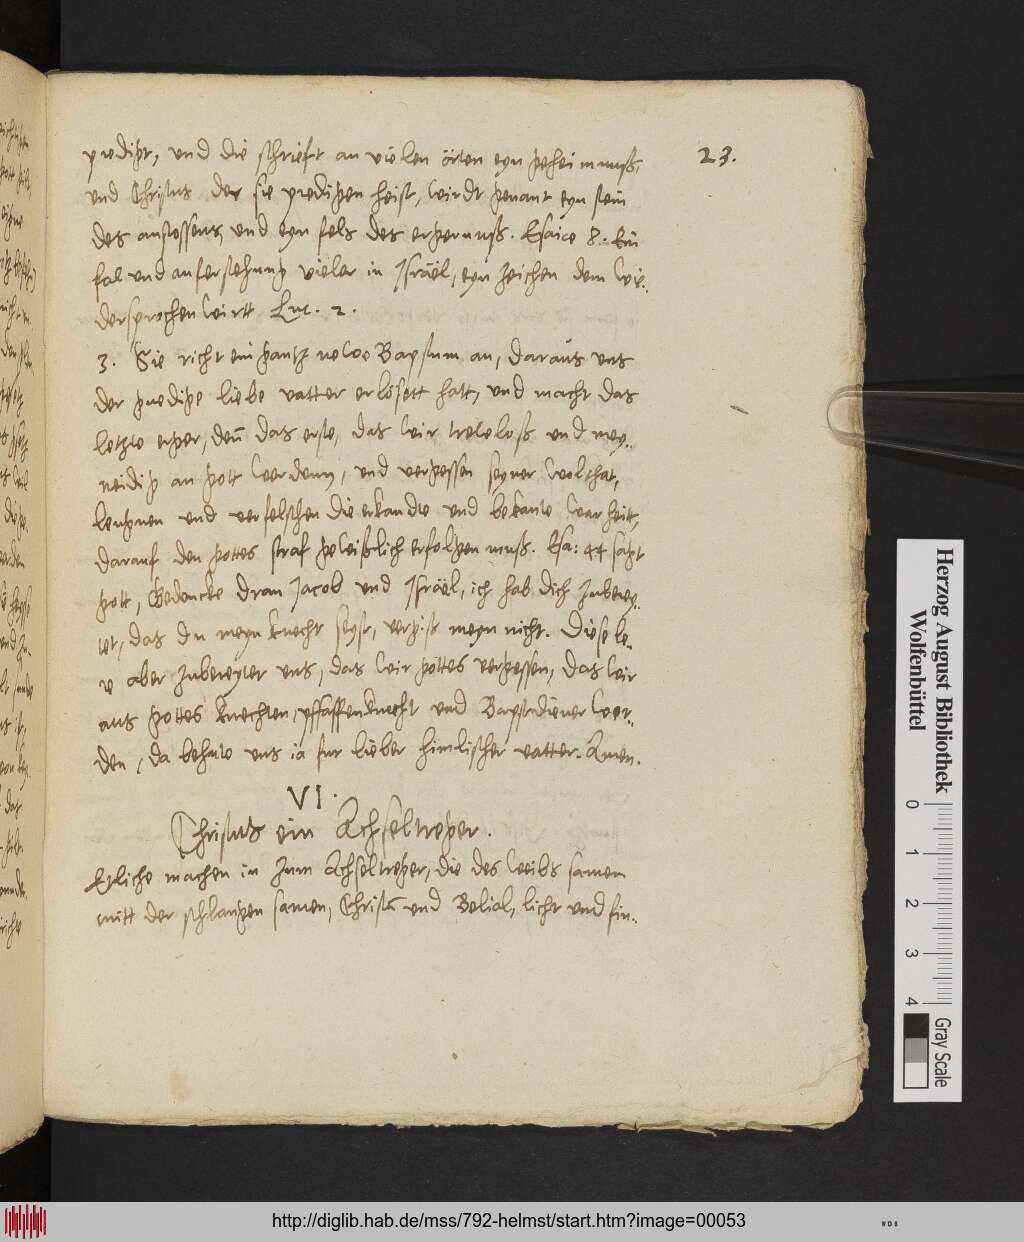 23.
predigt, und die schrieft an vielen örten eyn geheimnuß,
und Christus der sie predigen heist, wirdt genant eyn stein
des anstossens, und eyn fels des ergernuß. Esaiae 8. Ein
fal und auferstehung vieler in Israël, eyn zeichen dem wi-
dersprochen wirtt Luc. 2.
3. Sie richt ein gantz newe Bapstum an, daraus uns
der gnedige liebe vatter erlösett hatt, und macht das
letzte erger, den das erste, das wir treweloß und mey-
neidig an gott werdenn, und vergessen seyner wolthat,
leugnen und verfelschen die erkandte und bekante warheitt,
darauf den gottes straf gewißlich erfolgen muß. Esa: 44 sagt
gott, Gedencke dran Jacob und Israël, ich hab dich zuberey-
tet, das du meyn knecht seyst, vergiß meyn nicht. Diese le-
re aber zubereyter uns, das wir gottes vergessen, das wir
aus gottes knechten, pfaffenknecht und Bapstdiener wer-
den, da behute uns ia fur lieber himlischer vatter. Amen.
VI.
Christus ein Achseltreger.
Etzliche machen in zum Achseltreger, die des weibs samen
mitt der schlangen samen, Christum und Belial, licht und fin-
Herzog August Bibliothek
Wolfenbüttel
0 1 2 3 4
Gray Scale
http://diglib.hab.de/mss/792-helmst/start.htm?image=00053